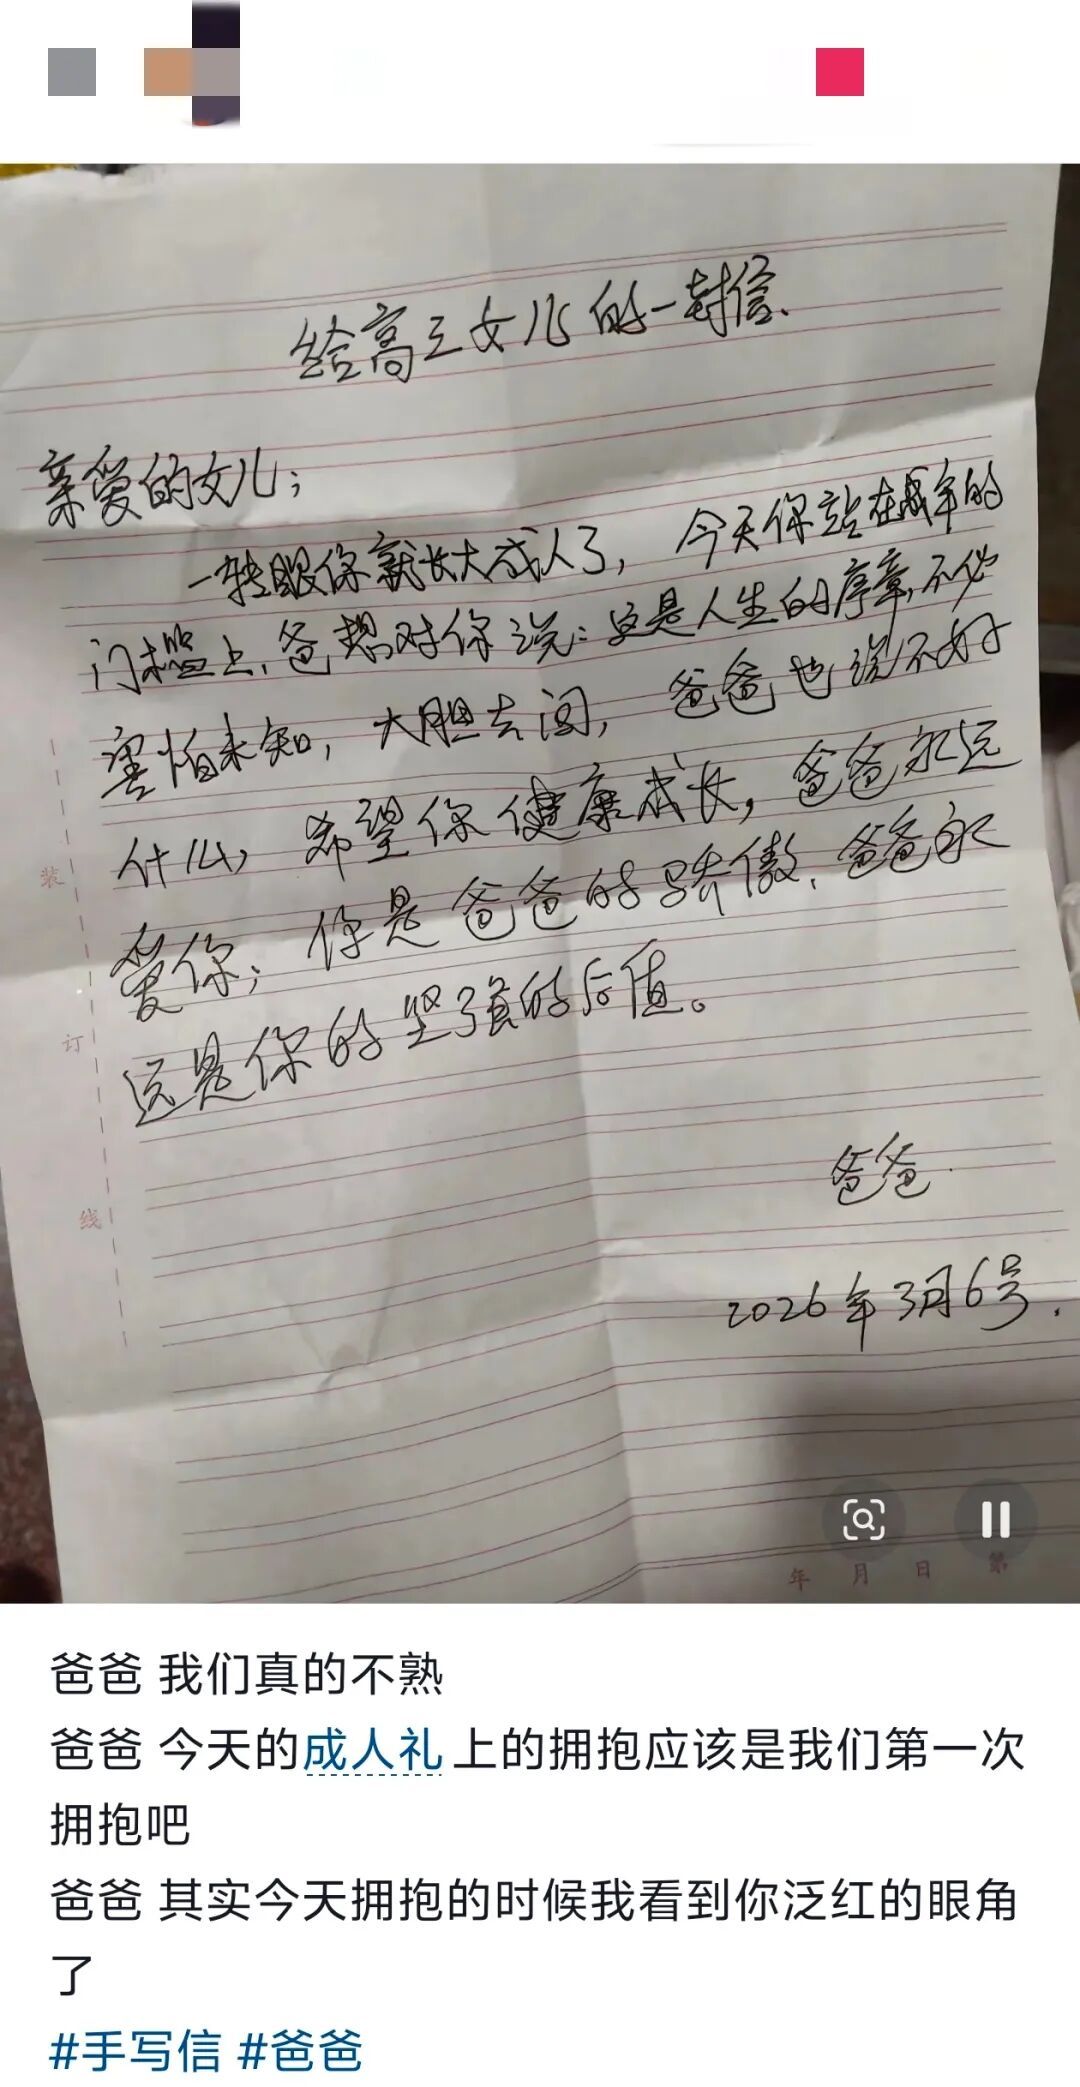 给高三女儿的一封信、
亲爱的女儿；
一转眼你就长大成人了，今天你站在成年的
门槛上、爸想对你说：这是人生的序章，不必
害怕未知，大胆去闯，爸爸也说不好
什么，希望你健康成长，爸爸永远
爱你；你是爸爸的骄傲、爸爸永
远是你的坚强的后值。
爸爸.
2026年3月6号.
装
订
线
年 月 日 第
爸爸 我们真的不熟
爸爸 今天的成人礼上的拥抱应该是我们第一次
拥抱吧
爸爸 其实今天拥抱的时候我看到你泛红的眼角
了
#手写信 #爸爸